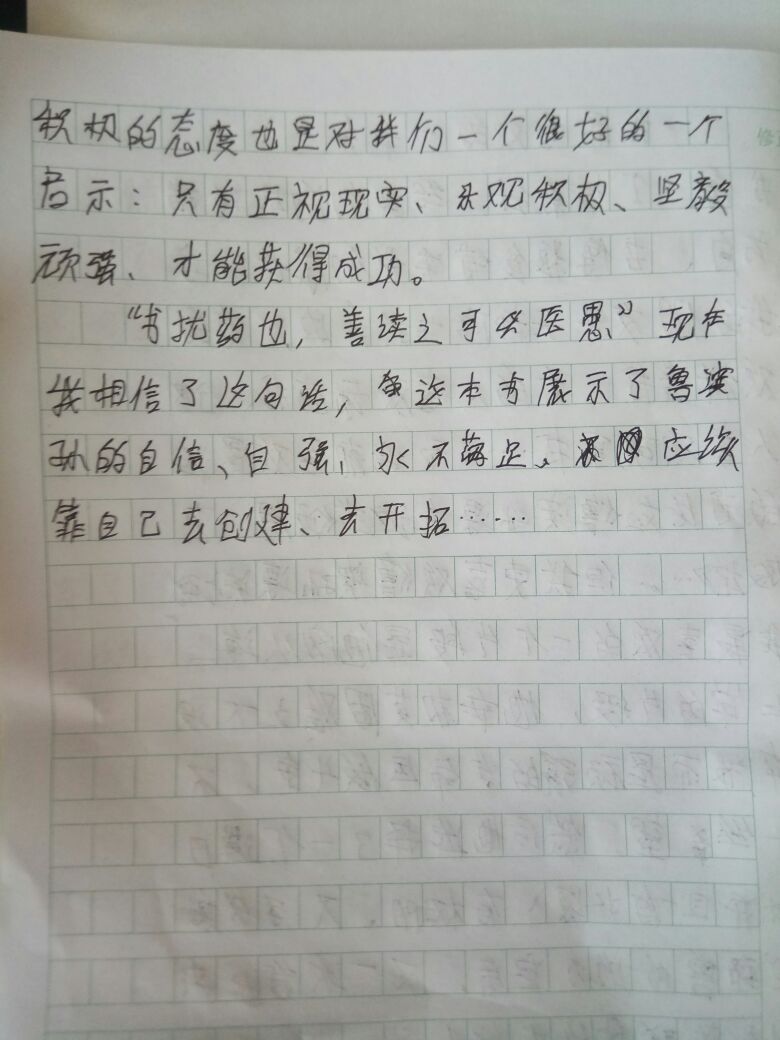 积极的态度也是对我们一个很好的一个
启示：只有正视现实、乐观积极、坚毅
顽强、才能获得成功。
“书犹药也，善读之可以医愚”现在
我相信了这句话，这本书展示了鲁滨
孙的自信、自强、永不满足、应该
靠自己去创建、去开拓……